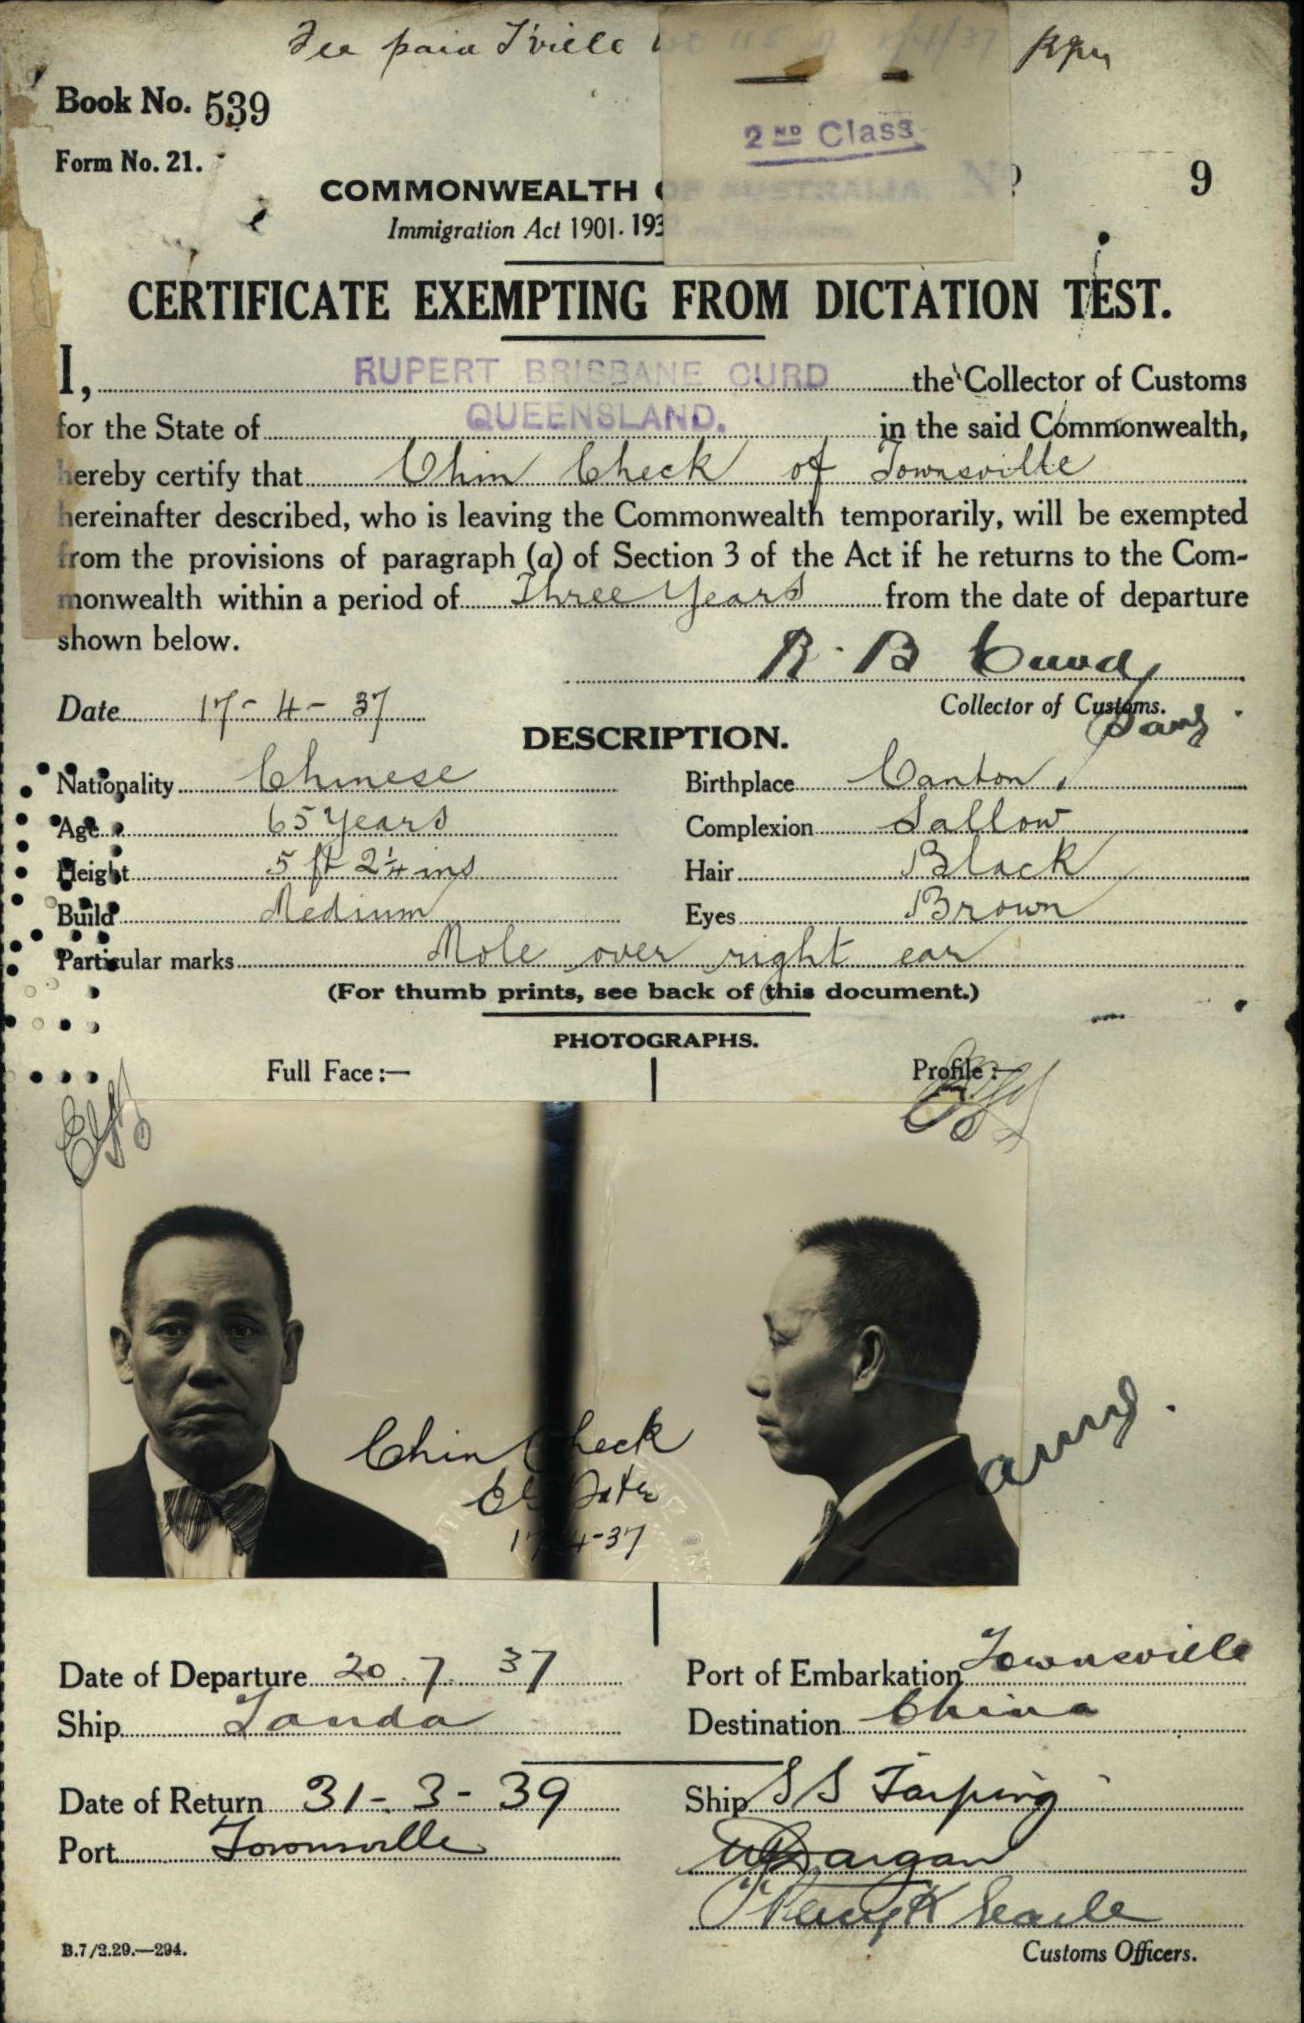 Fee paid T'ville
2ND Class
Book No. 539
Form No. 21.
COMMONWEALTH OF AUSTRALIA. No 9
Immigration Act 1901-193
CERTIFICATE EXEMPTING FROM DICTATION TEST.
I, RUPERT BRISBANE CURD the Collector of Customs
for the State of QUEENSLAND. in the said Commonwealth,
hereby certify that Chin Check of Townsville
hereinafter described, who is leaving the Commonwealth temporarily, will be exempted
from the provisions of paragraph (a) of Section 3 of the Act if he returns to the Com-
monwealth within a period of Three Years from the date of departure
shown below.
R. B Curd
Date 17-4-37 Collector of Customs.
DESCRIPTION.
Nationality Chinese Birthplace Canton
Age 65 Years Complexion Sallow
Height 5 ft 2¼ ins Hair Black
Build Medium Eyes Brown
Particular marks Mole over right ear
(For thumb prints, see back of this document.)
PHOTOGRAPHS.
Full Face:— Profile:—
Chin Check
17-4-37
Date of Departure 20.7.37 Port of Embarkation Townsville
Ship Tanda Destination China
Date of Return 31-3-39 Ship SS Taiping
Port Townsville
Customs Officers.
B.7/2.29.—294.